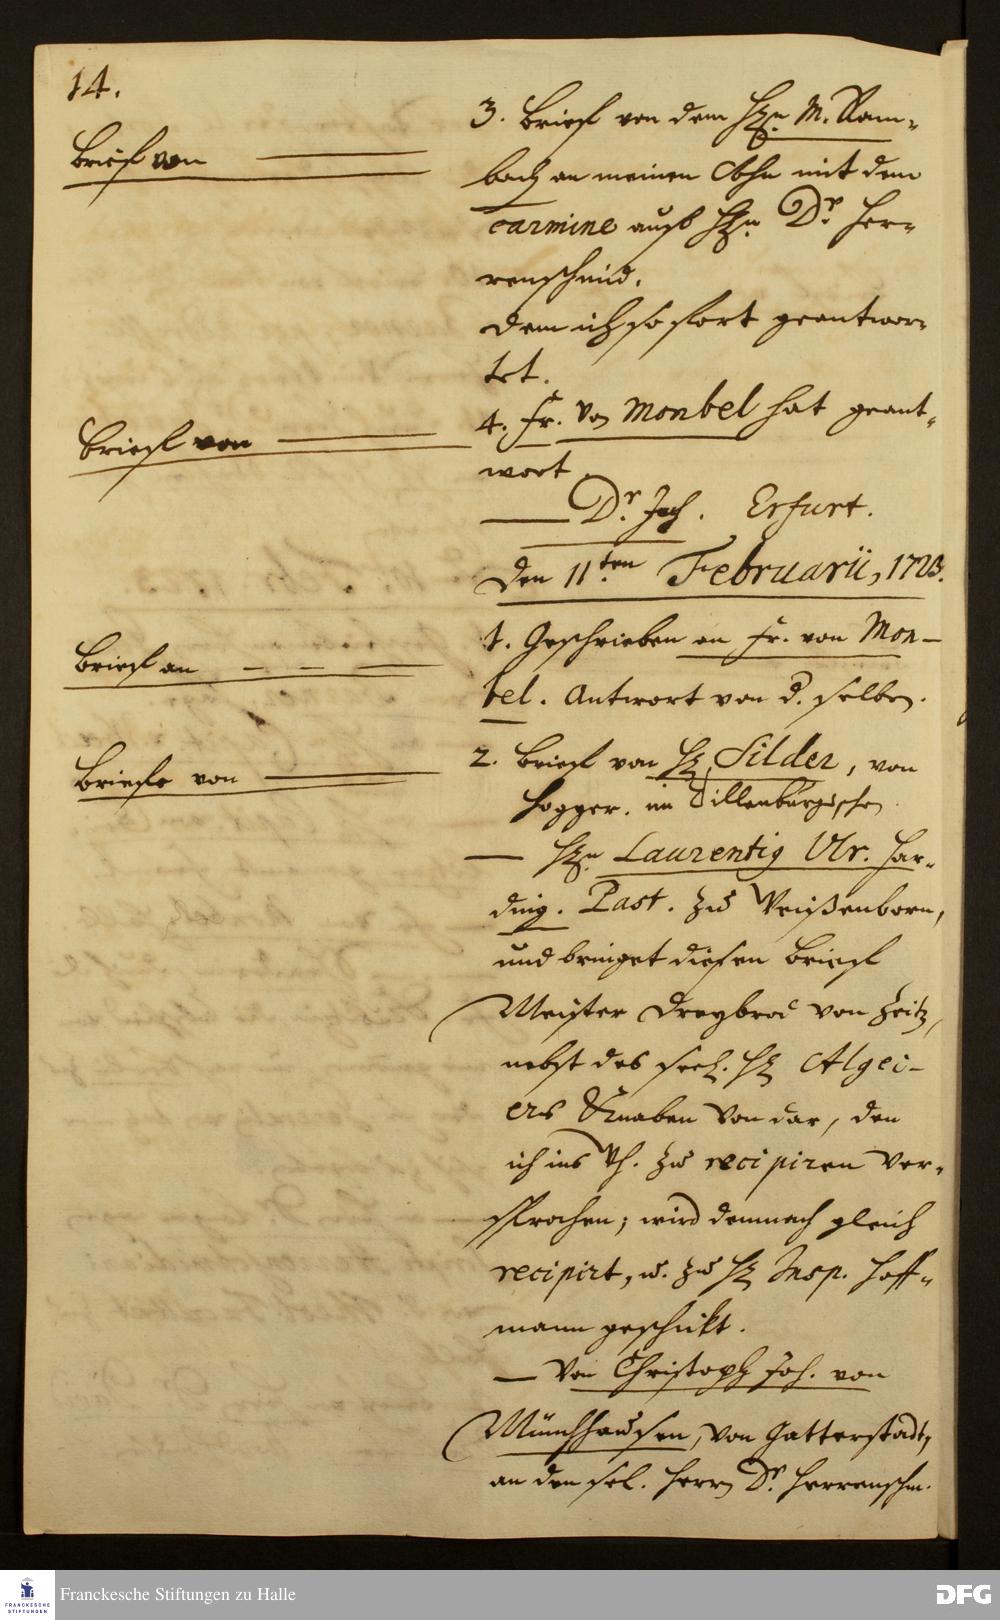 14.
Brief von
3. Brief von dem Hrn. M. Ram-
bach an meinen Sohn mit dem
carmine auf Hrn. Dr. Her-
renschmid.
dem ich sofort geantwor-
tet.
Brief von
4. Fr. Von Monbel hat geant-
wort
— Dr. Jach. Erfurt.
Den 11ten Februarii, 1723.
Brief an
1. Geschrieben an Fr. von Mon-
bel. Antwort von d. selben.
Briefe von
2. Brief von H. Silder, von
Hogger. im Dillenburgischen
— Hrn Laurentig Ulr. Har-
ding. Past. zu Weißenborn,
und bringet diesen Brief
Meister Dreybrod von Zeitz,
nebst des seel. H. Algei-
ers Knaben von dar, den
ich ins Wh. zu recipiren ver-
sprochen; wird demnach gleich
recipirt, u. zu H. Insp. Hoff-
mann geschickt.
— Von Christoph Joh. von
Münchhausen, von Gatterstadt,
an den sel. Herrn Dr. Herrenschm.
Franckesche Stiftungen zu Halle
FRANCKESCHE
STIFTUNGEN
DFG